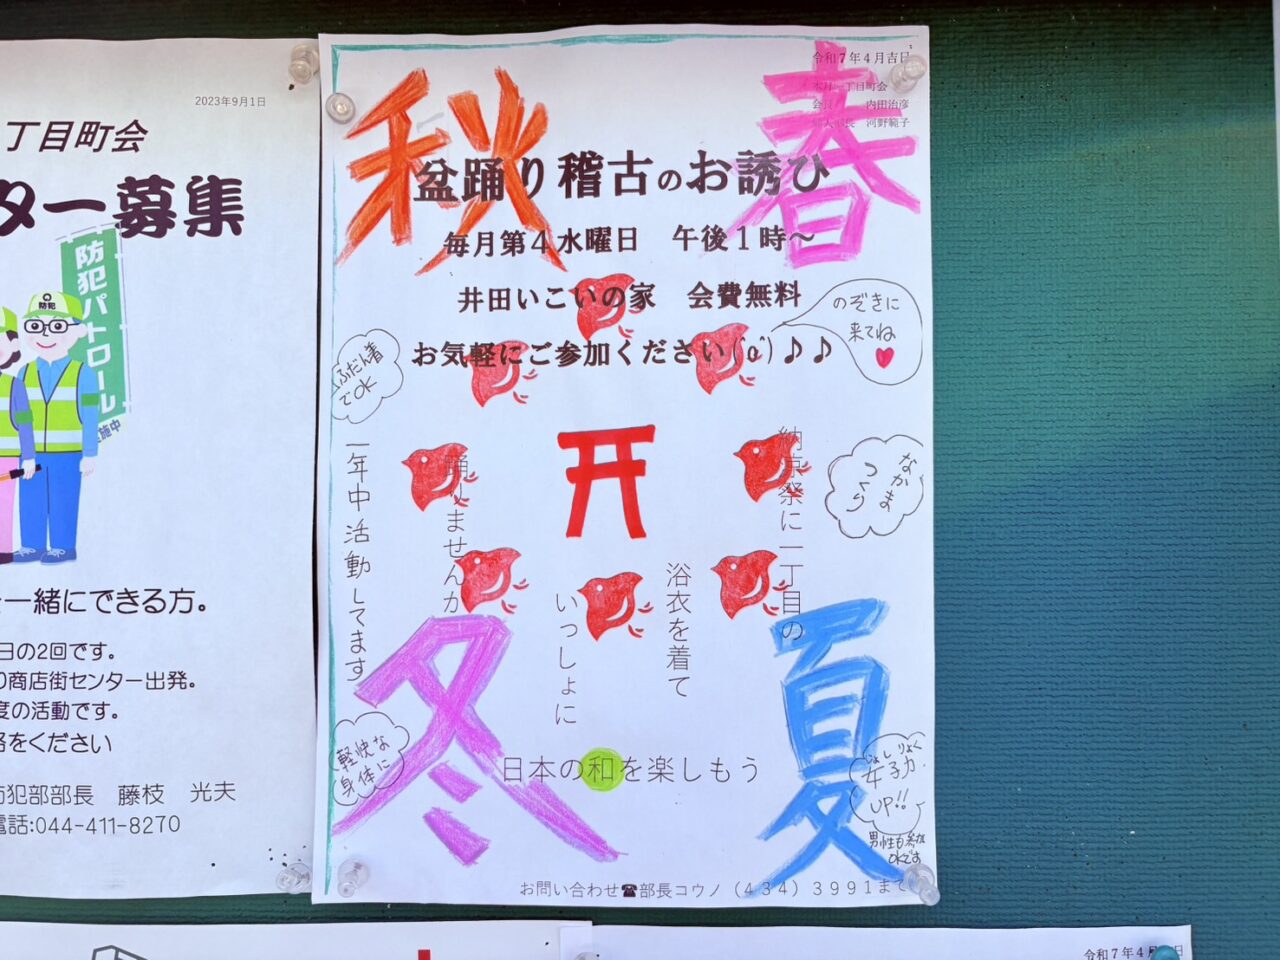 2023年9月1日
丁目町会
ター募集
防犯パトロール
防犯
一緒にできる方。
日の2回です。
商店街センター出発。
度の活動です。
をください
防犯部部長 藤枝 光夫
電話:044-411-8270
令和7年4月吉日
丁目町会
会長 内田治彦
長 河野範子
春
秋
盆踊り稽古のお誘ひ
毎月第4水曜日 午後1時～
井田いこいの家 会費無料
お気軽にご参加ください(^o^)♪♪
のぞきに
来てね
ふだん着
でOK
なかま
つくり
納涼祭に一丁目の
浴衣を着て
いっしょに
踊りませんか
一年中活動してます
日本の和を楽しもう
夏
冬
軽快な
身体に
じょしりょく
女子力
UP!!
男性も参加
OKです
お問い合わせ☎部長コウノ(434)3991まで
令和7年4